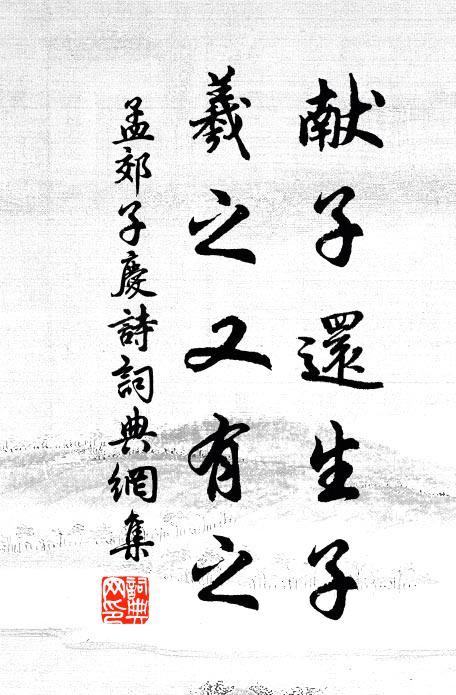 献子還生子
羲之又有之
孟郊子慶詩詞典網集
詞典網印